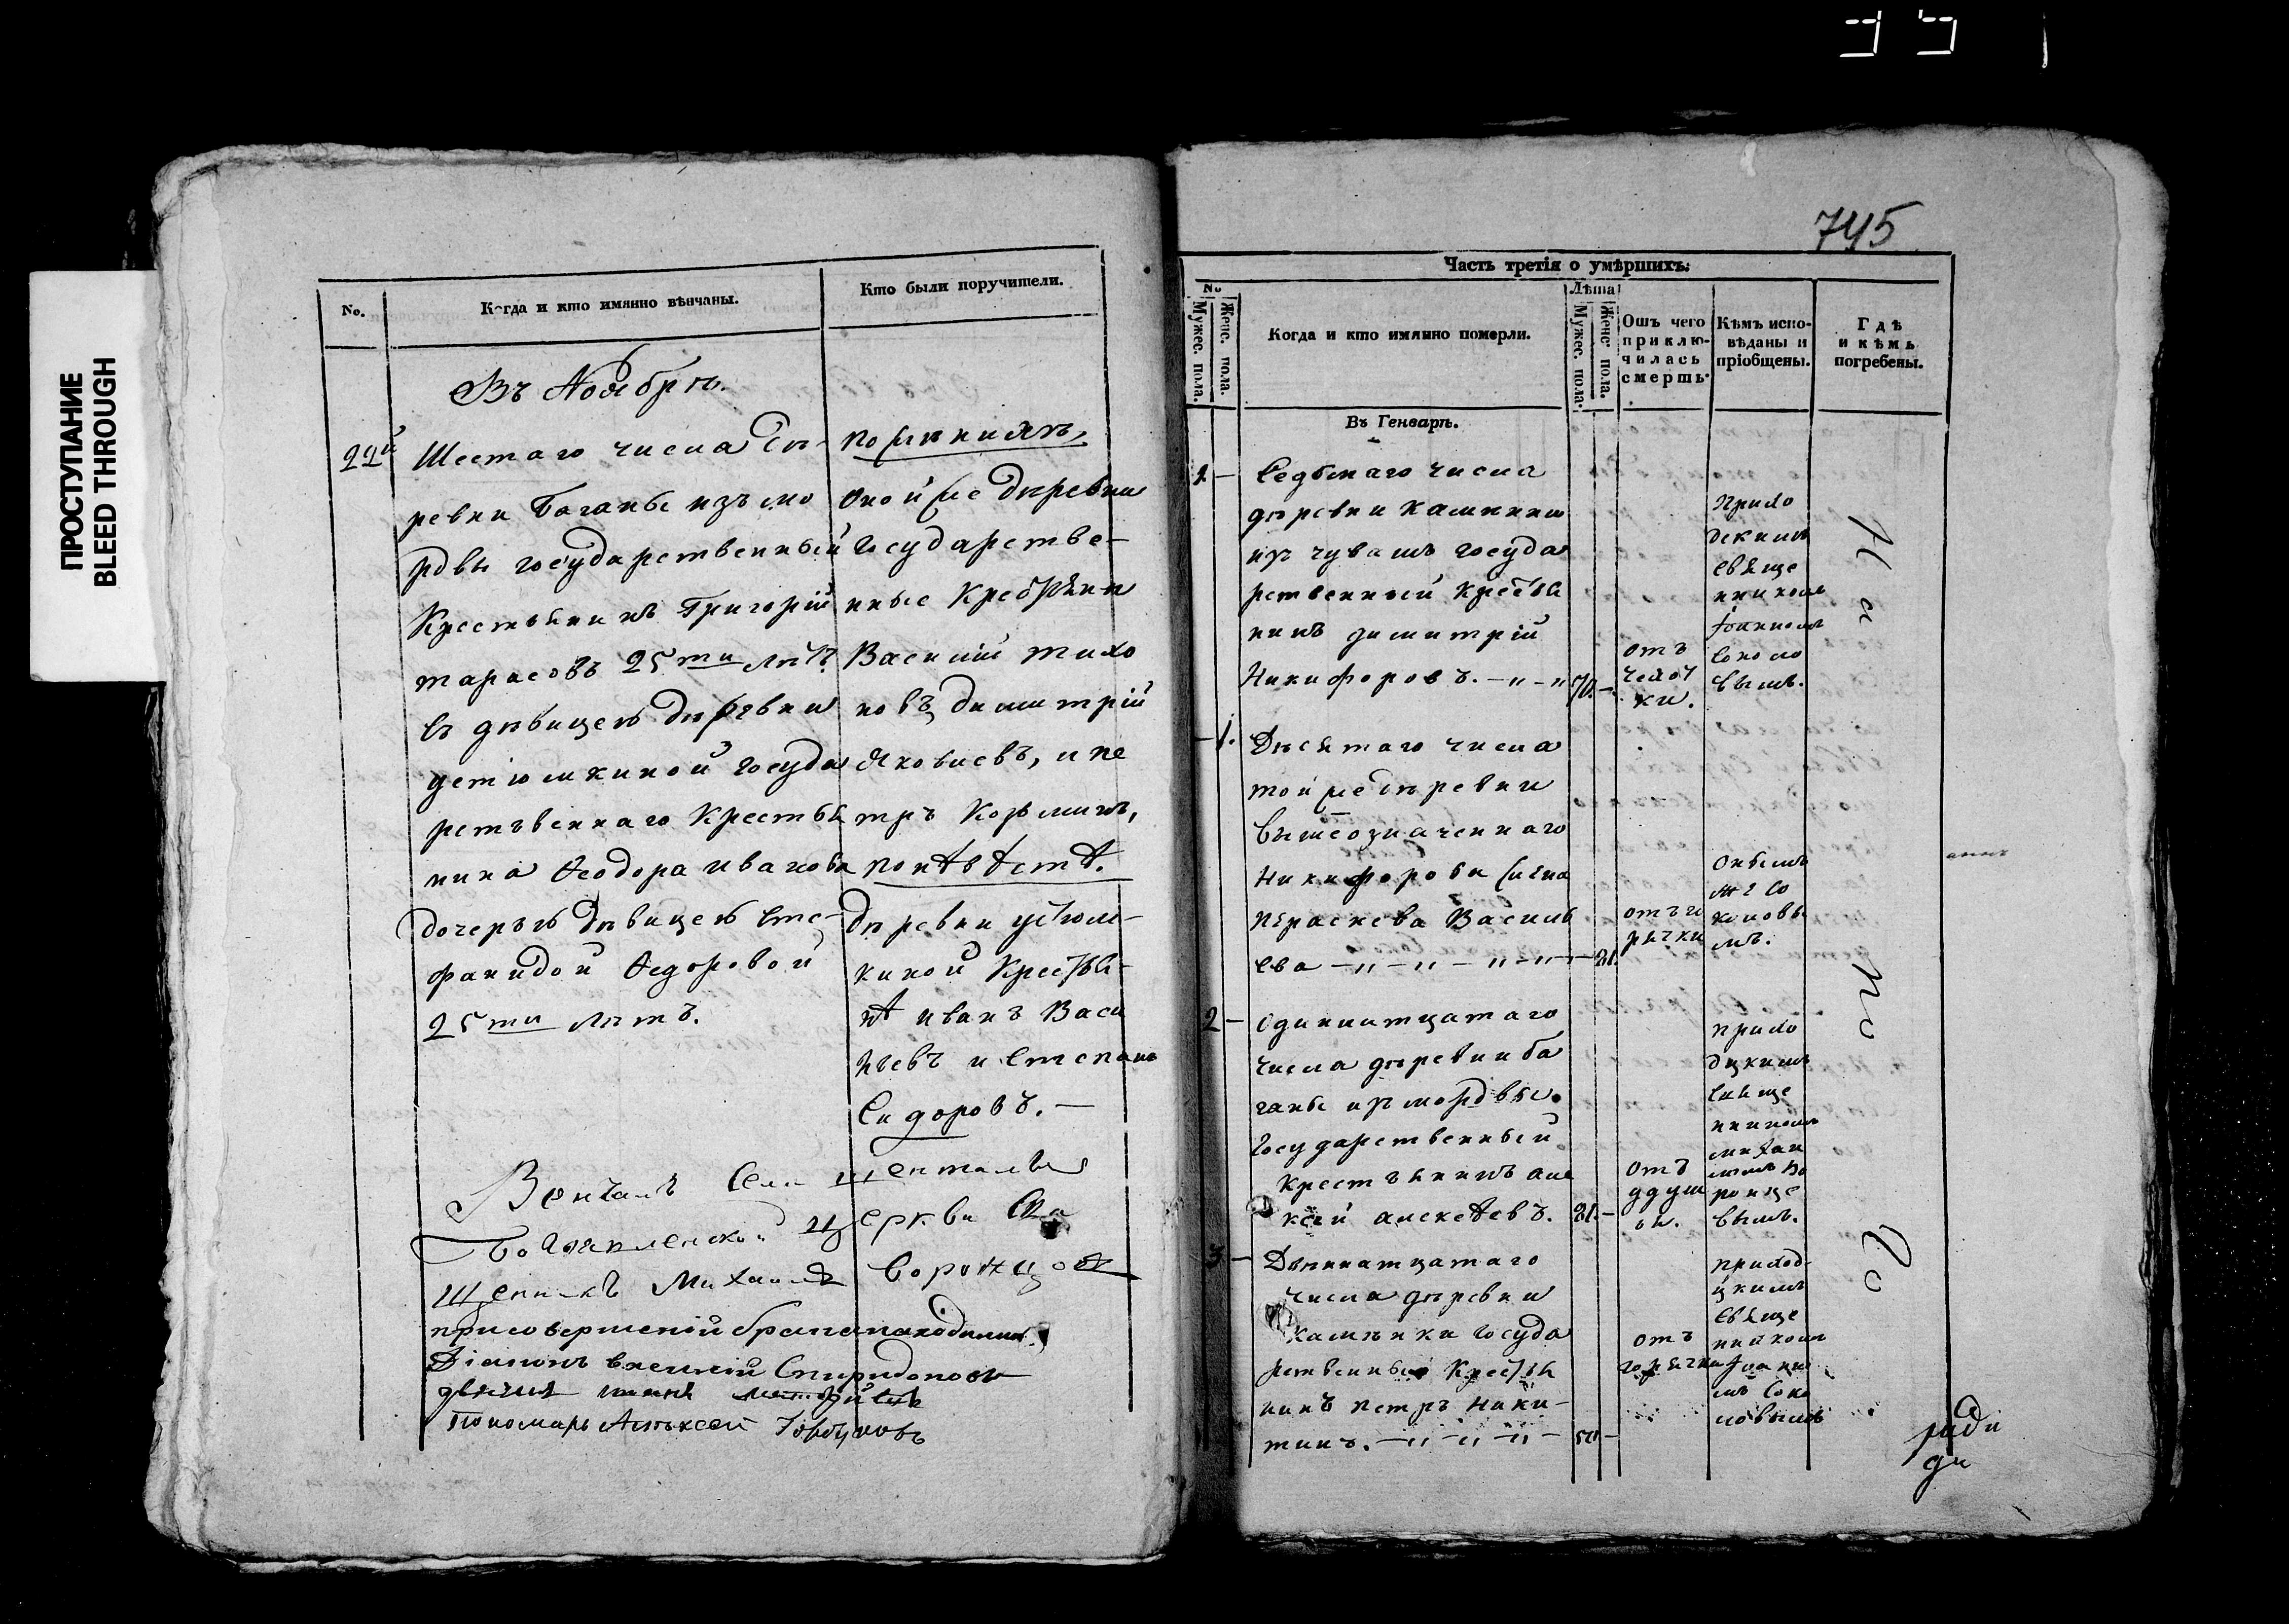 ПРОСТУПАНИЕ
BLEED THROUGH
No.
Когда и кто имянно вѣнчаны.
Кто были поручители.
Въ Ноябрѣ.
22й
Шестаго числа дѣ-
ревни Баганы изъ мо
рдвы государственный
Крестьянинъ Григорій
тарасовъ 25ти лѣтъ
съ дѣвицею дѣревни
устюмкиной госуда
рственнаго Крестья
нина Ѳеодора иванова
дочерью дѣвицею Сте-
фанидой Ѳедоровой
25ти лѣтъ.
по женихѣ,
оной же дѣревни
Государстве-
нные Крестьяне
Василій тихо
новъ димитрій
Яковлевъ, и пе
тръ Козминъ,
по невесте.
дѣревни устюм-
киной Крестья-
не иванъ Васи
льевъ и Степанъ
Сидоровъ.
Венчалъ Села шенталы
Богоявленской церкви Свя
щенникъ Михаилъ Воронцов
при совершеній брака находились
Діаконъ василий Спиридонов
Пономарь Алѣксей Горбуновъ
745
Часть третія о умѣршихъ.
No
Мужес. пола.
Женс. пола.
Когда и кто имянно померли.
Лѣта
Мужес. пола.
Женс. пола.
Отъ чего
приклю-
чилась
смерть.
Кѣмъ испо-
вѣданы и
пріобщены.
Гдѣ
и кѣмъ
погребены.
Въ Генварѣ.
1
Седьмаго числа
дѣревни Камкини
изъ чувашъ госуда
рственный крестья
нинъ димитрій
Никифоровъ.
70.
отъ
чехот
ки.
Прихо
дскимъ
свяще
нникомъ
Іоанномъ
Соколо
вымъ.
1.
Дѣсятаго числа
той же дѣревни
вышеозначеннаго
Никифорова жена
Параскева Василь
ева
81.
отъ го
рячки
онымъ
же Со
коловы
мъ.
2
одиннатцатаго
числа дѣревни ба
ганы изъ мордвы
Государственный
крестьянинъ але
ксѣй алексеевъ.
81.
отъ
удуш
ья.
прихо
дцкимъ
свяще
нникомъ
михаи
ломъ Во
ронцо
вымъ.
3
Двенатцатаго
числа дѣревни
камкини госуда
рственный Крестья
нинъ петръ ники-
тинъ.
50
отъ
горячки
приход-
цкимъ
свяще
нникомъ
Іоанно
мъ Соко
ловымъ
На